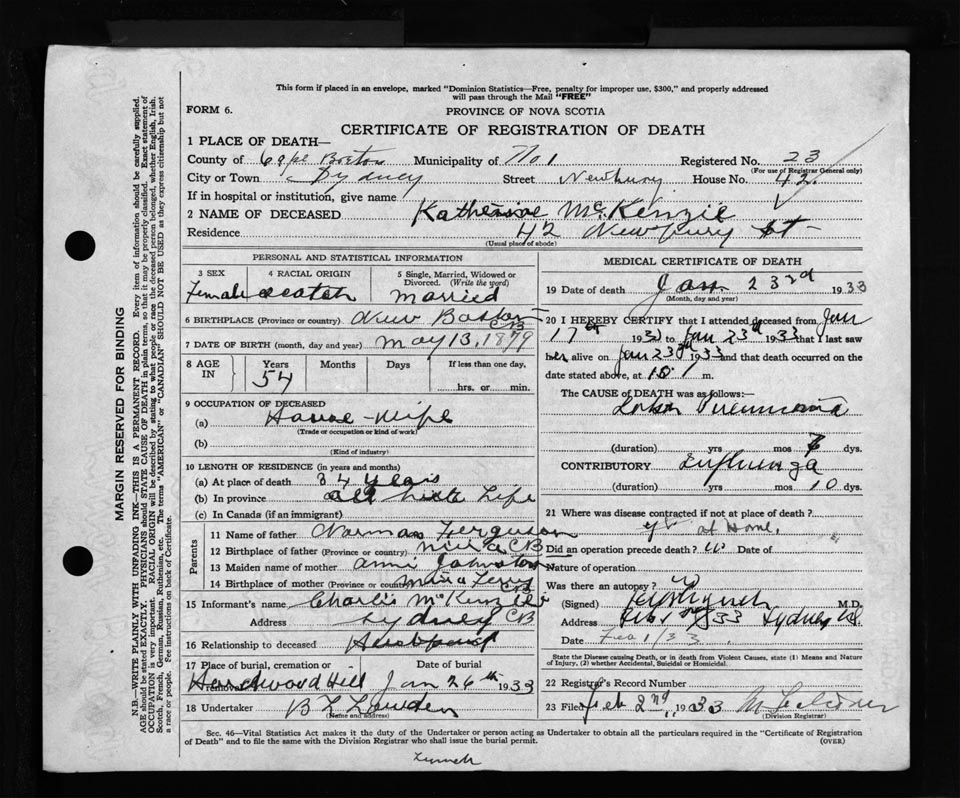 This form if placed in an envelope, marked "Dominion Statistics—Free, penalty for improper use, $300," and properly addressed
will pass through the Mail "FREE"
FORM 6.
PROVINCE OF NOVA SCOTIA
CERTIFICATE OF REGISTRATION OF DEATH
1 PLACE OF DEATH—
County of Cape Breton Municipality of No 1 Registered No. 23
(For use of Registrar General only)
City or Town Sydney Street Newbury House No. 42
If in hospital or institution, give name
2 NAME OF DECEASED Katherine McKenzie
Residence 42 Newbury st
(Usual place of abode)
PERSONAL AND STATISTICAL INFORMATION
3 SEX 4 RACIAL ORIGIN 5 Single, Married, Widowed or
Divorced. (Write the word)
Female Scotch Married
6 BIRTHPLACE (Province or country) New Boston
CB
7 DATE OF BIRTH (month, day and year) May 13, 1879
8 AGE IN Years Months Days If less than one day,
54
hrs. or min.
9 OCCUPATION OF DECEASED
(a) House-wife
(Trade or occupation or kind of work)
(b)
(Kind of industry)
10 LENGTH OF RESIDENCE (in years and months)
(a) At place of death 34 years
(b) In province all Life
(c) In Canada (if an immigrant)
Parents
11 Name of father Norman Ferguson
12 Birthplace of father (Province or country) Mira CB
13 Maiden name of mother Annie Johnston
14 Birthplace of mother (Province or country) Mira Ferry
CB
15 Informant's name Charlie McKenzie
Address Sydney CB
16 Relationship to deceased Husband
17 Place of burial, cremation or removal Date of burial
Hardwood Hill Jan 26th 1933
18 Undertaker
(Name and address)
MEDICAL CERTIFICATE OF DEATH
19 Date of death Jan 23rd 1933
(Month, day and year)
20 I HEREBY CERTIFY that I attended deceased from Jan
17th 193 to Jan 23rd 1933 that I last saw
her alive on Jan 23rd 1933 and that death occurred on the
date stated above, at m.
The CAUSE of DEATH was as follows:—
Lobar Pneumonia
(duration) yrs mos dys.
CONTRIBUTORY Influenza
(duration) yrs mos 10 dys.
21 Where was disease contracted if not at place of death?
at Home.
Did an operation precede death? Date of
Nature of operation
Was there an autopsy?
(Signed) M.D.
Address Sydney
Date Feb 1/33
State the Disease causing Death, or in death from Violent Causes, state (1) Means and Nature
of Injury, (2) whether Accidental, Suicidal or Homicidal.
22 Registrar's Record Number
23 Filed Feb 2nd, 1933
(Division Registrar)
Sec. 46—Vital Statistics Act makes it the duty of the Undertaker or person acting as Undertaker to obtain all the particulars required in the "Certificate of Registration
of Death" and to file the same with the Division Registrar who shall issue the burial permit. (OVER)
MARGIN RESERVED FOR BINDING
N.B.—WRITE PLAINLY WITH UNFADING INK—THIS IS A PERMANENT RECORD. Every item of information should be carefully supplied.
AGE should be stated EXACTLY. PHYSICIANS should STATE CAUSE OF DEATH in plain terms, so that it may be properly classified. Exact statement of
OCCUPATION is very important. RACIAL ORIGIN will be described by stating to what people or race the deceased person belonged, whether English, Irish,
Scotch, French, German, Russian, Ruthenian, etc. The terms "AMERICAN" or "CANADIAN" SHOULD NOT BE USED as they express citizenship but not
a race or people. See instructions on back of Certificate.